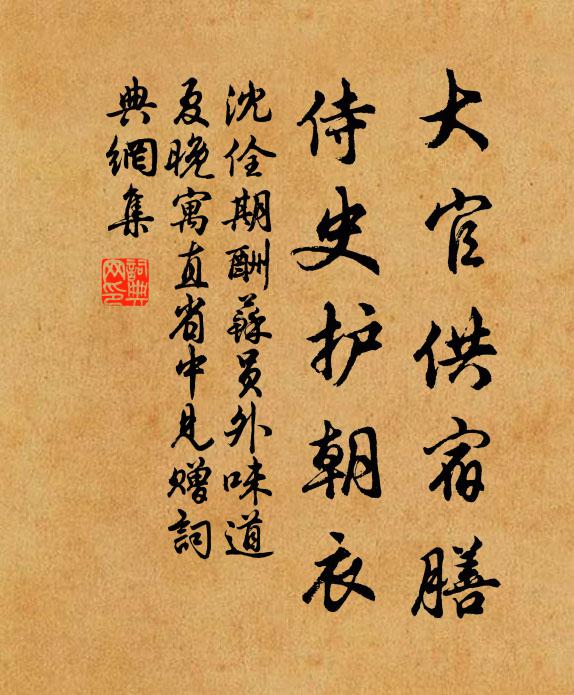 大官供宿膳
侍史护朝衣
沈佺期酬蘇員外味道
夏晚寓直省中見贈詞
典網集
詞典网印